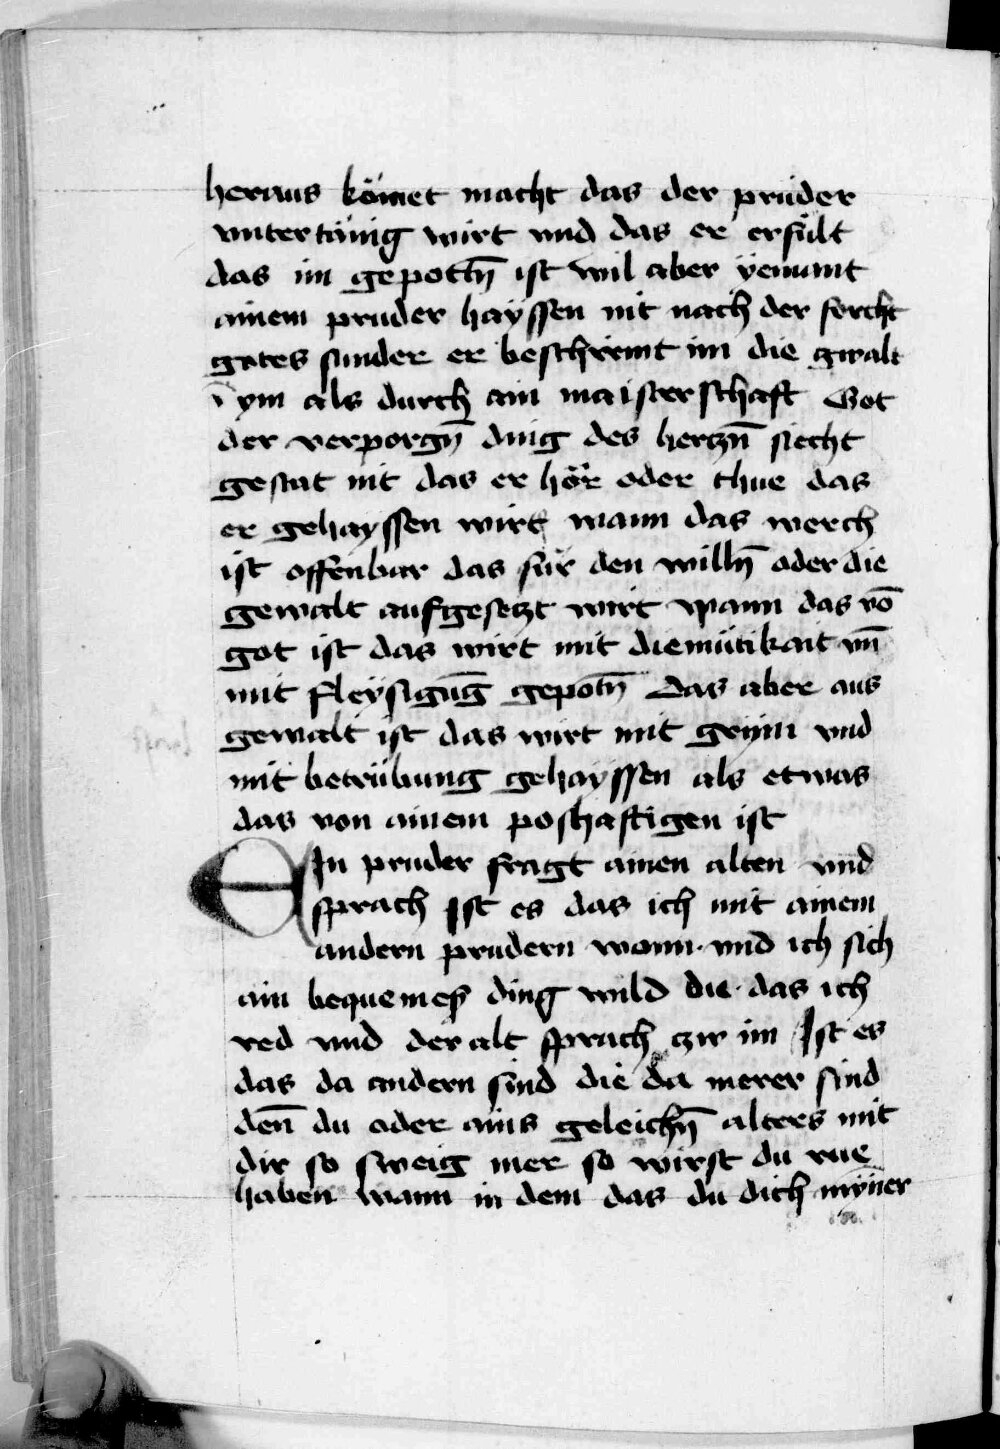 heraus kömet macht das der pruder
untertänig wirt und das er erfült
das im gepotn̄ ist wil aber yemant
ainem pruder hayssen nit nach der forcht
gotes sunder er beschremt im die gwalt
ym als durch ain maisterschaft Got
der verporgn̄ ding des hertzn̄ siecht
gestat nit das er hör oder thue das
er gehayssen wirt wann das werch
ist offenbar das für den willn̄ oder die
gewalt aufgesetzt wirt wann das vō
got ist das wirt mit diemütikait vn̄
mit fleysigūg gepotn̄ Das aber aus
gewalt ist das wirt mit grym vnd
mit betrübung gehayssen als etwas
das von ainem poshaftigen ist
EIn pruder fragt ainen alten vnd
sprach Ist es das ich mit ainem
andern prudern wonn. vnd ich sich
ain bequemes ding wild du das ich
red vnd der alt sprach zw im Ist es
das da andern sind die da merer sind
den̄ du oder ains geleichn̄ alters mit
dir so sweig mer so wirst du rue
haben wann in dem das du dich mÿner